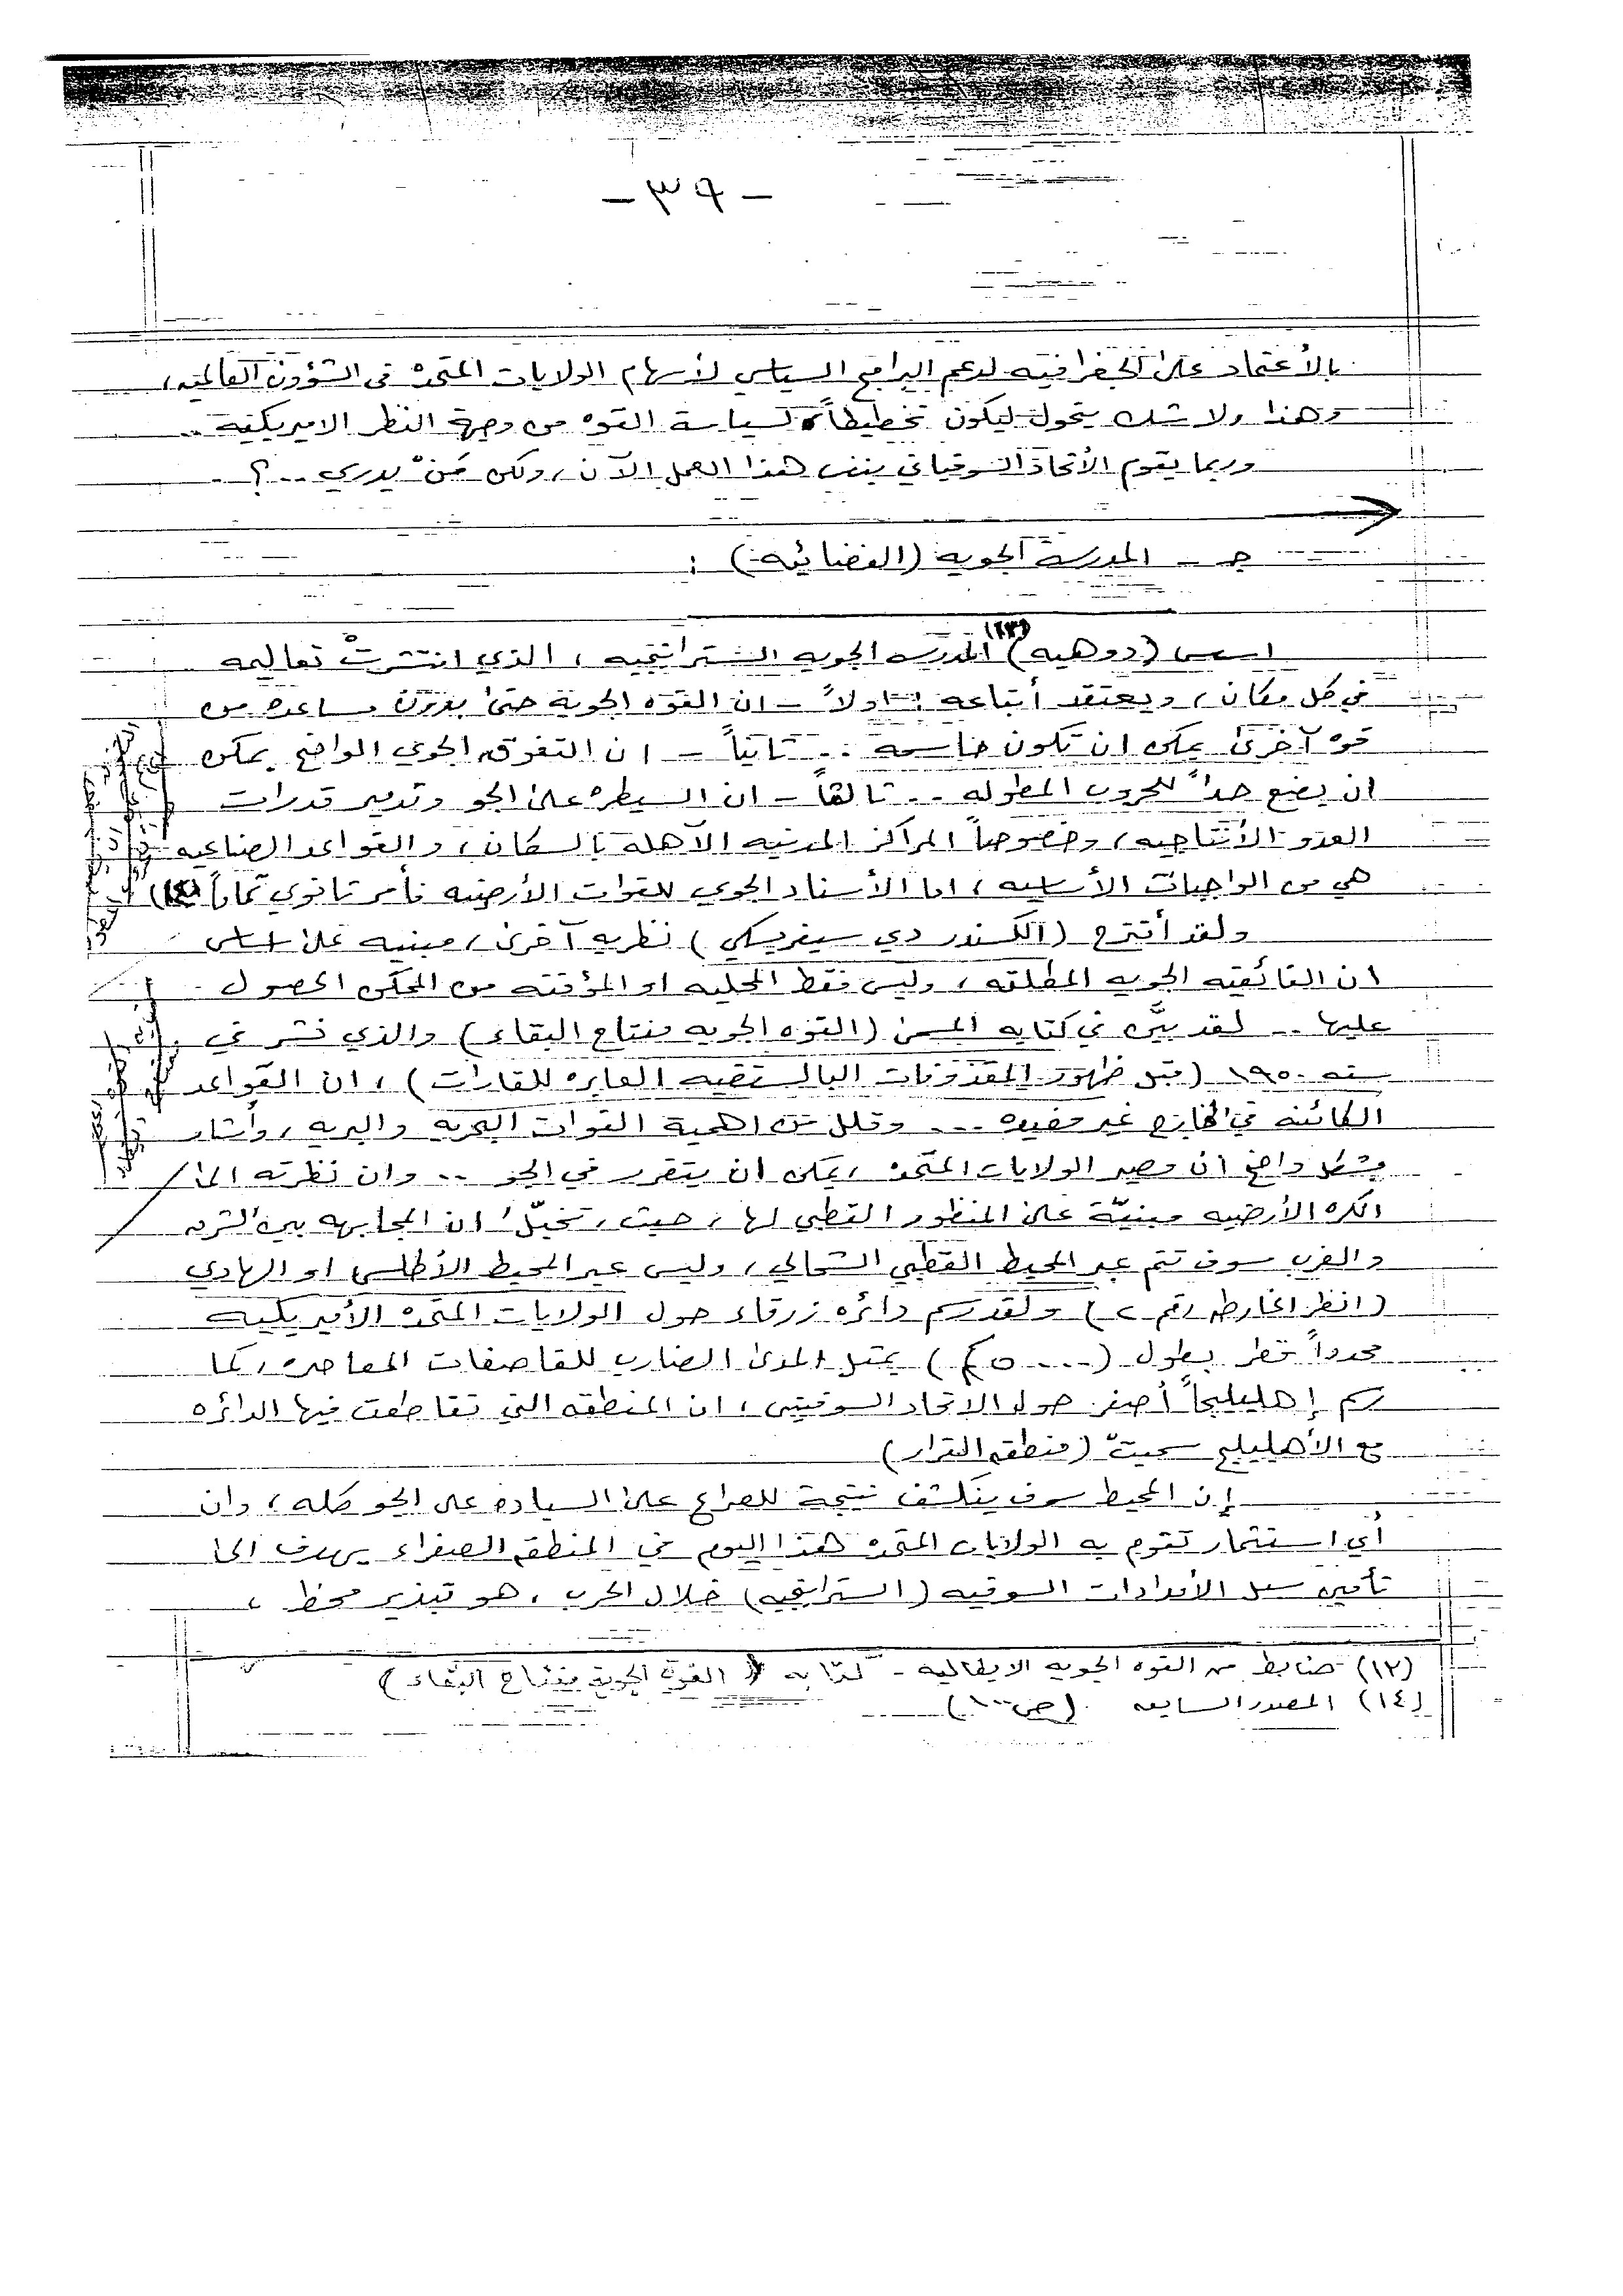 - ٣٩ -
بالأعتماد على الجغرافيه لدعم البرامج السياسي لأسهام الولايات المتحدة في الشؤون العالميه،
وهذا ولا شك يتحول ليكون تخطيطاً لسياسة القوه من وجهة النظر الاميريكيه ..
وربما يقوم الأتحاد السوفياتي بنفس هذا العمل الآن، ولكن مَنْ يدري ..؟
جـ - المدرسة الجويه (الفضائيه) :
اسس (دوهيه) (١٣) المدرسه الجويه الستراتيجيه، الذي انتشرتْ تعاليمه
في كل مكان، ويعتقد أتباعه : اولاً - ان القوه الجوية حتى بدون مساعده من
قوه آخرى يمكن ان تكون حاسمة .. ثانياً - ان التفوق الجوي الواضح يمكن
ان يضع حداً للحروب المطوله .. ثالثاً - ان السيطره على الجو وتدمير قدرات
العدو الأنتاجيه، وخصوصاً المراكز المدنيه الآهله بالسكان، والقواعد الصناعيه
هي من الواجبات الأساسيه، اما الأسناد الجوي للقوات الأرضيه فأمر ثانوي تماماً (١٤)
ولقد أقترح (الكسندر دي سيفرسكي) نظريه آخرى، مبنيه على اساس
ان الفائقيه الجويه المطلقه، وليس فقط المحليه او المؤقته من الممكن الحصول
عليها .. لقد بيَّن في كتابه المسمى (القوه الجويه مفتاح البقاء) والذي نشر في
سنه ١٩٥٠ (قبل ظهور المقذوفات البالستقيه العابره للقارات)، ان القواعد
الكائنه في الخارج غير مفيده ... وقلل من اهمية القوات البحريه والبريه، وأشار
بشكل واضح ان مصير الولايات المتحده، يمكن ان يتقرر في الجو .. وان نظرته الى
الكره الأرضيه مبنيّة على المنظور القطبي لها، حيث، تخيّل ان المجابهه بين الشرق
والغرب سوف تتم عبر المحيط القطبي الشمالي، وليس عبر المحيط الأطلسي او الهادي
(انظر الخارطه رقم ٢) ولقد رسم دائره زرقاء حول الولايات المتحده الأميريكيه
محدداً قطر بطول (٥٠٠٠ كم) يمثل المدى الضارب للقاصفات المعاصره، كما
رسم إهليليجاً أصفر حول الاتحاد السوفيتي، ان المنطقه التي تقاطعت فيها الدائره
مع الأهليليج سميتْ (منطقه القرار)
إن المحيط سوف ينكشف نتيجة للصراع على السياده على الجو كله، وان
أي استثمار تقوم به الولايات المتحده هذا اليوم في المنطقه الصفراء يهدف الى
تأمين سبل الأمدادات السوقيه (الستراتيجيه) خلال الحرب، هو تبذير محظ،
(١٣) ضابط من القوه الجويه الايطاليه - كتابه (القوة الجوية مفتاح البقاء)
(١٤) المصدر السابق (ص ١٠٠)